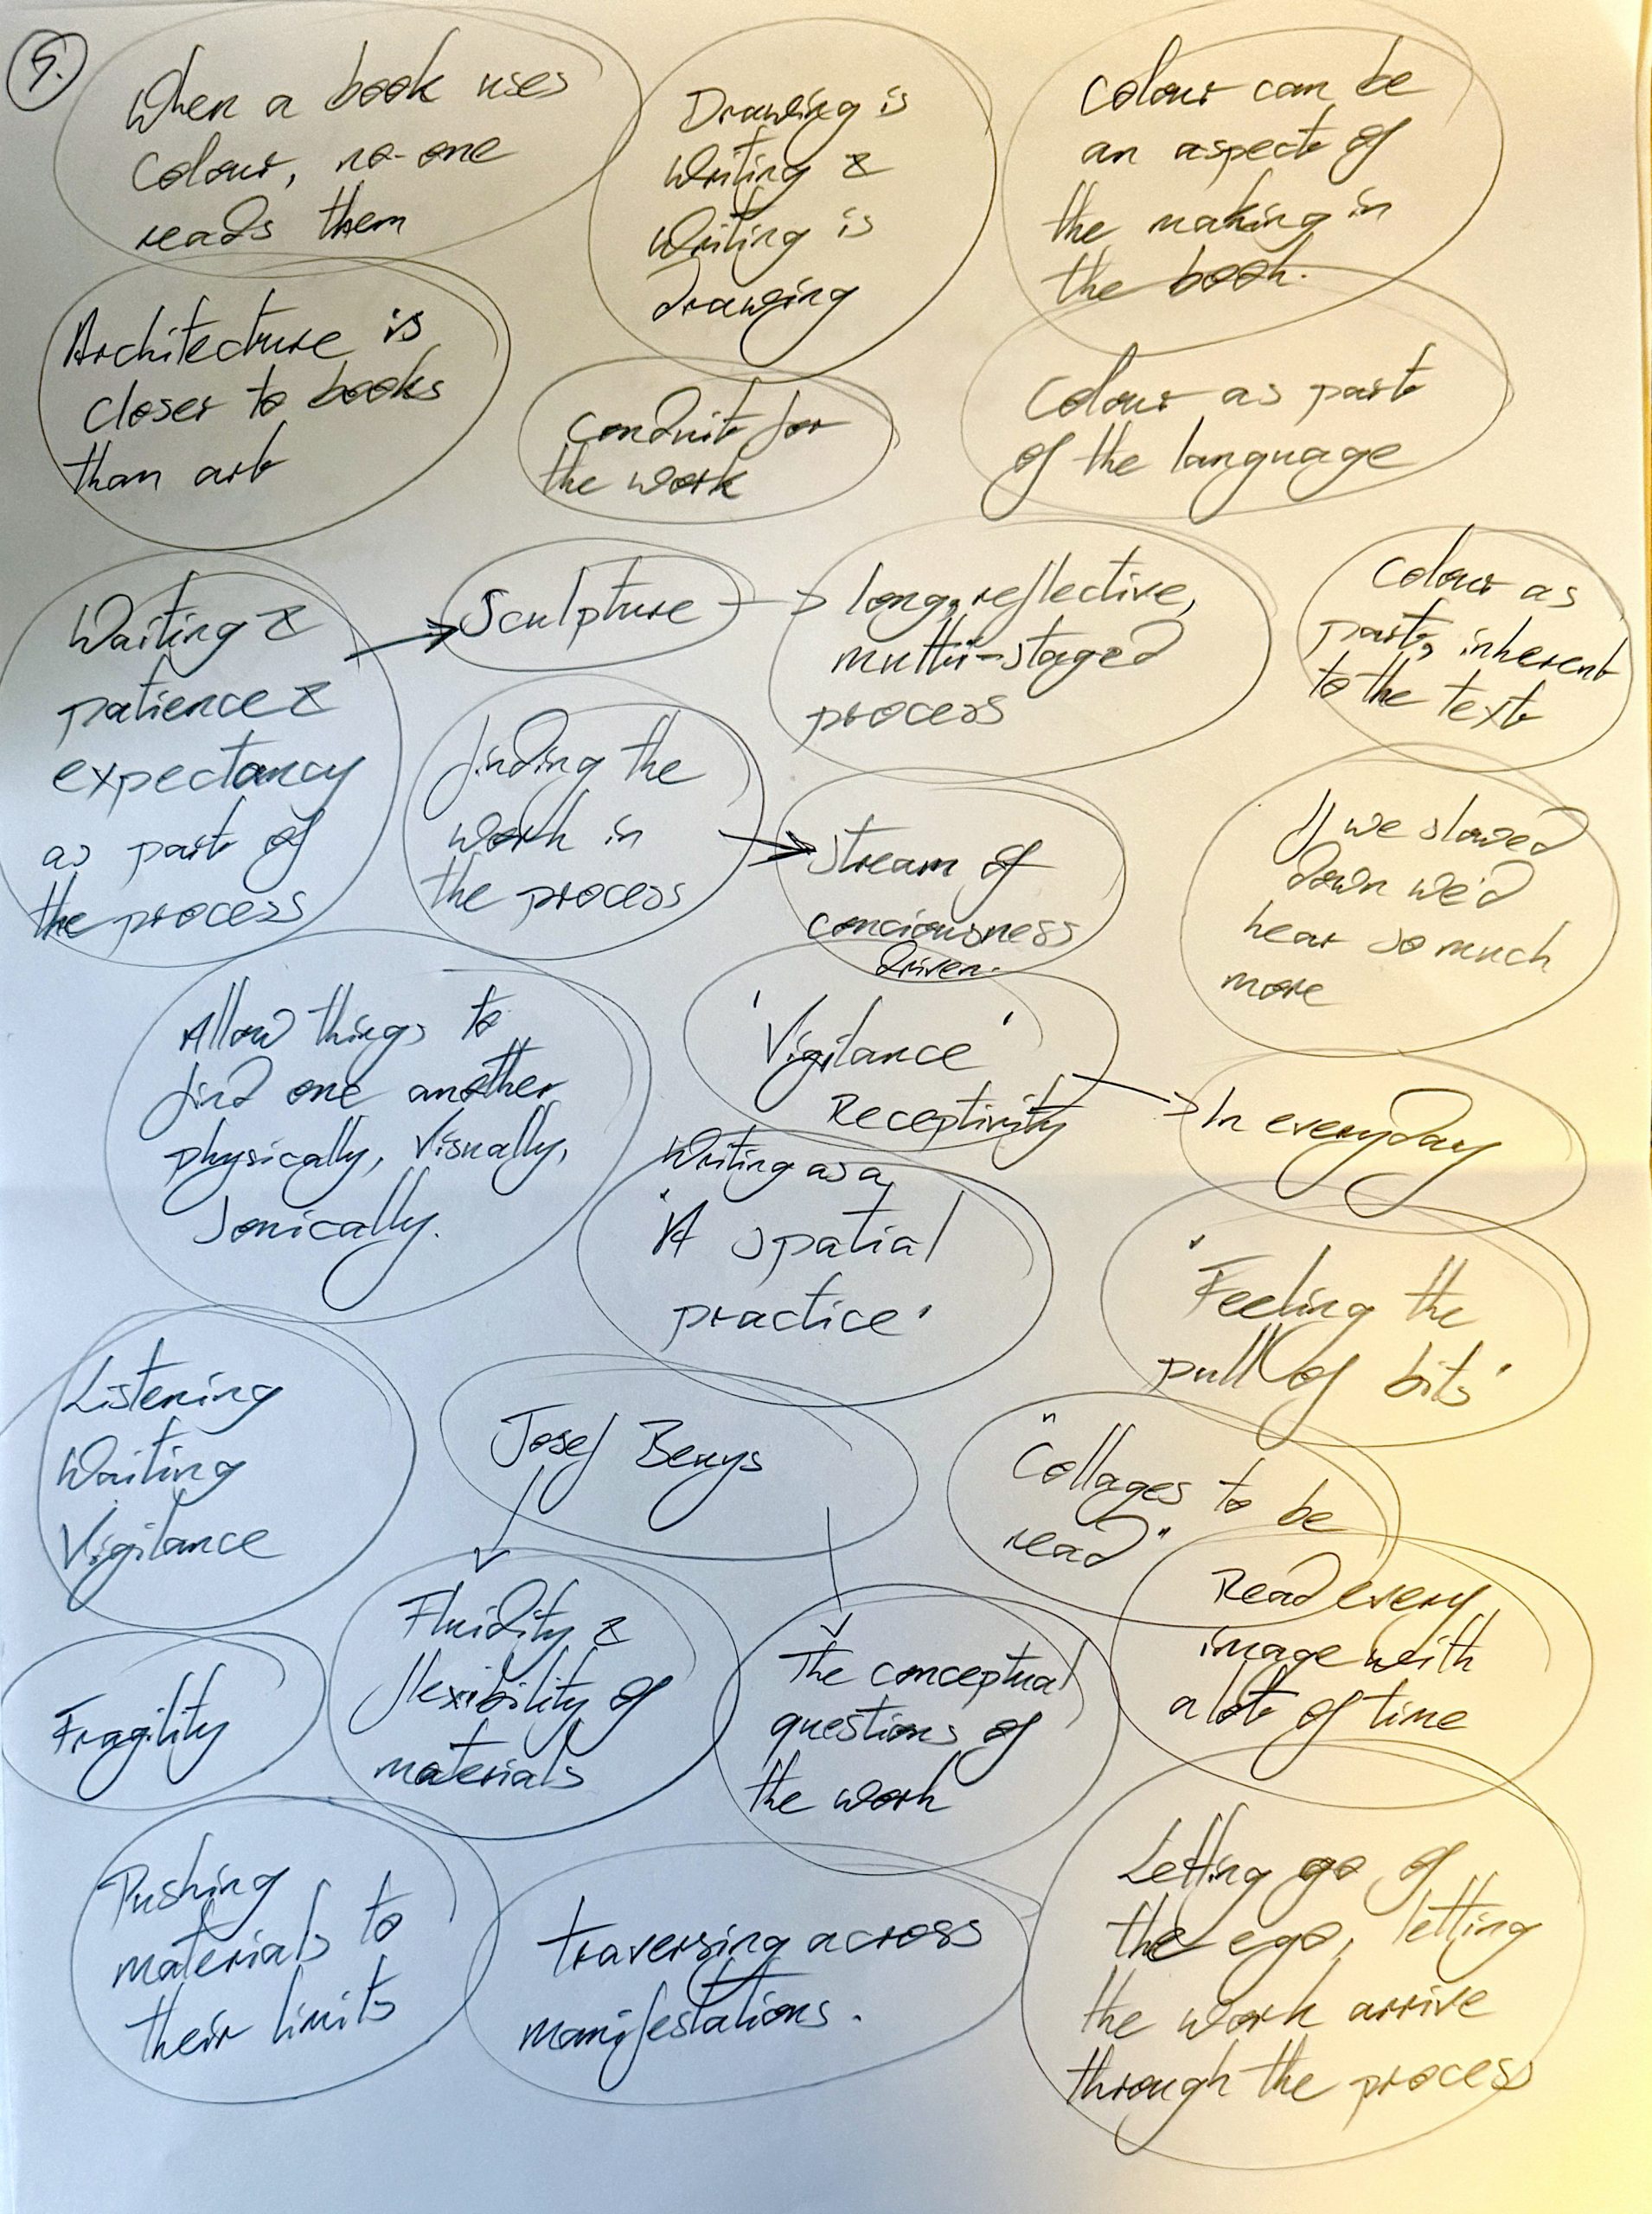 5.
When a book uses
colour, no-one
reads them
Drawing is
writing &
writing is
drawing
Colour can be
an aspect of
the making in
the book.
Architecture is
closer to books
than art
Conduit for
the work
Colour as part
of the language
Waiting &
patience &
expectancy
as part of
the process
Sculpture
long, reflective,
multi-staged
process
Colour as
part, inherent
to the text
finding the
work in
the process
stream of
conciousness
driven.
If we slowed
down we'd
hear so much
more
Allow things to
find one another
physically, visually,
sonically.
'Vigilance'
Receptivity
In everyday
Writing as a
'A spatial
practice'
'Feeling the
pull of bits'
Listening
Waiting
Vigilance
Josef Beuys
"Collages to be
read"
Read every
image with
a lot of time
Fragility
Fluidity &
flexibility of
materials
The conceptual
questions of
the work
Pushing
materials to
their limits
traversing across
manifestations.
Letting go of
the ego, letting
the work arrive
through the process